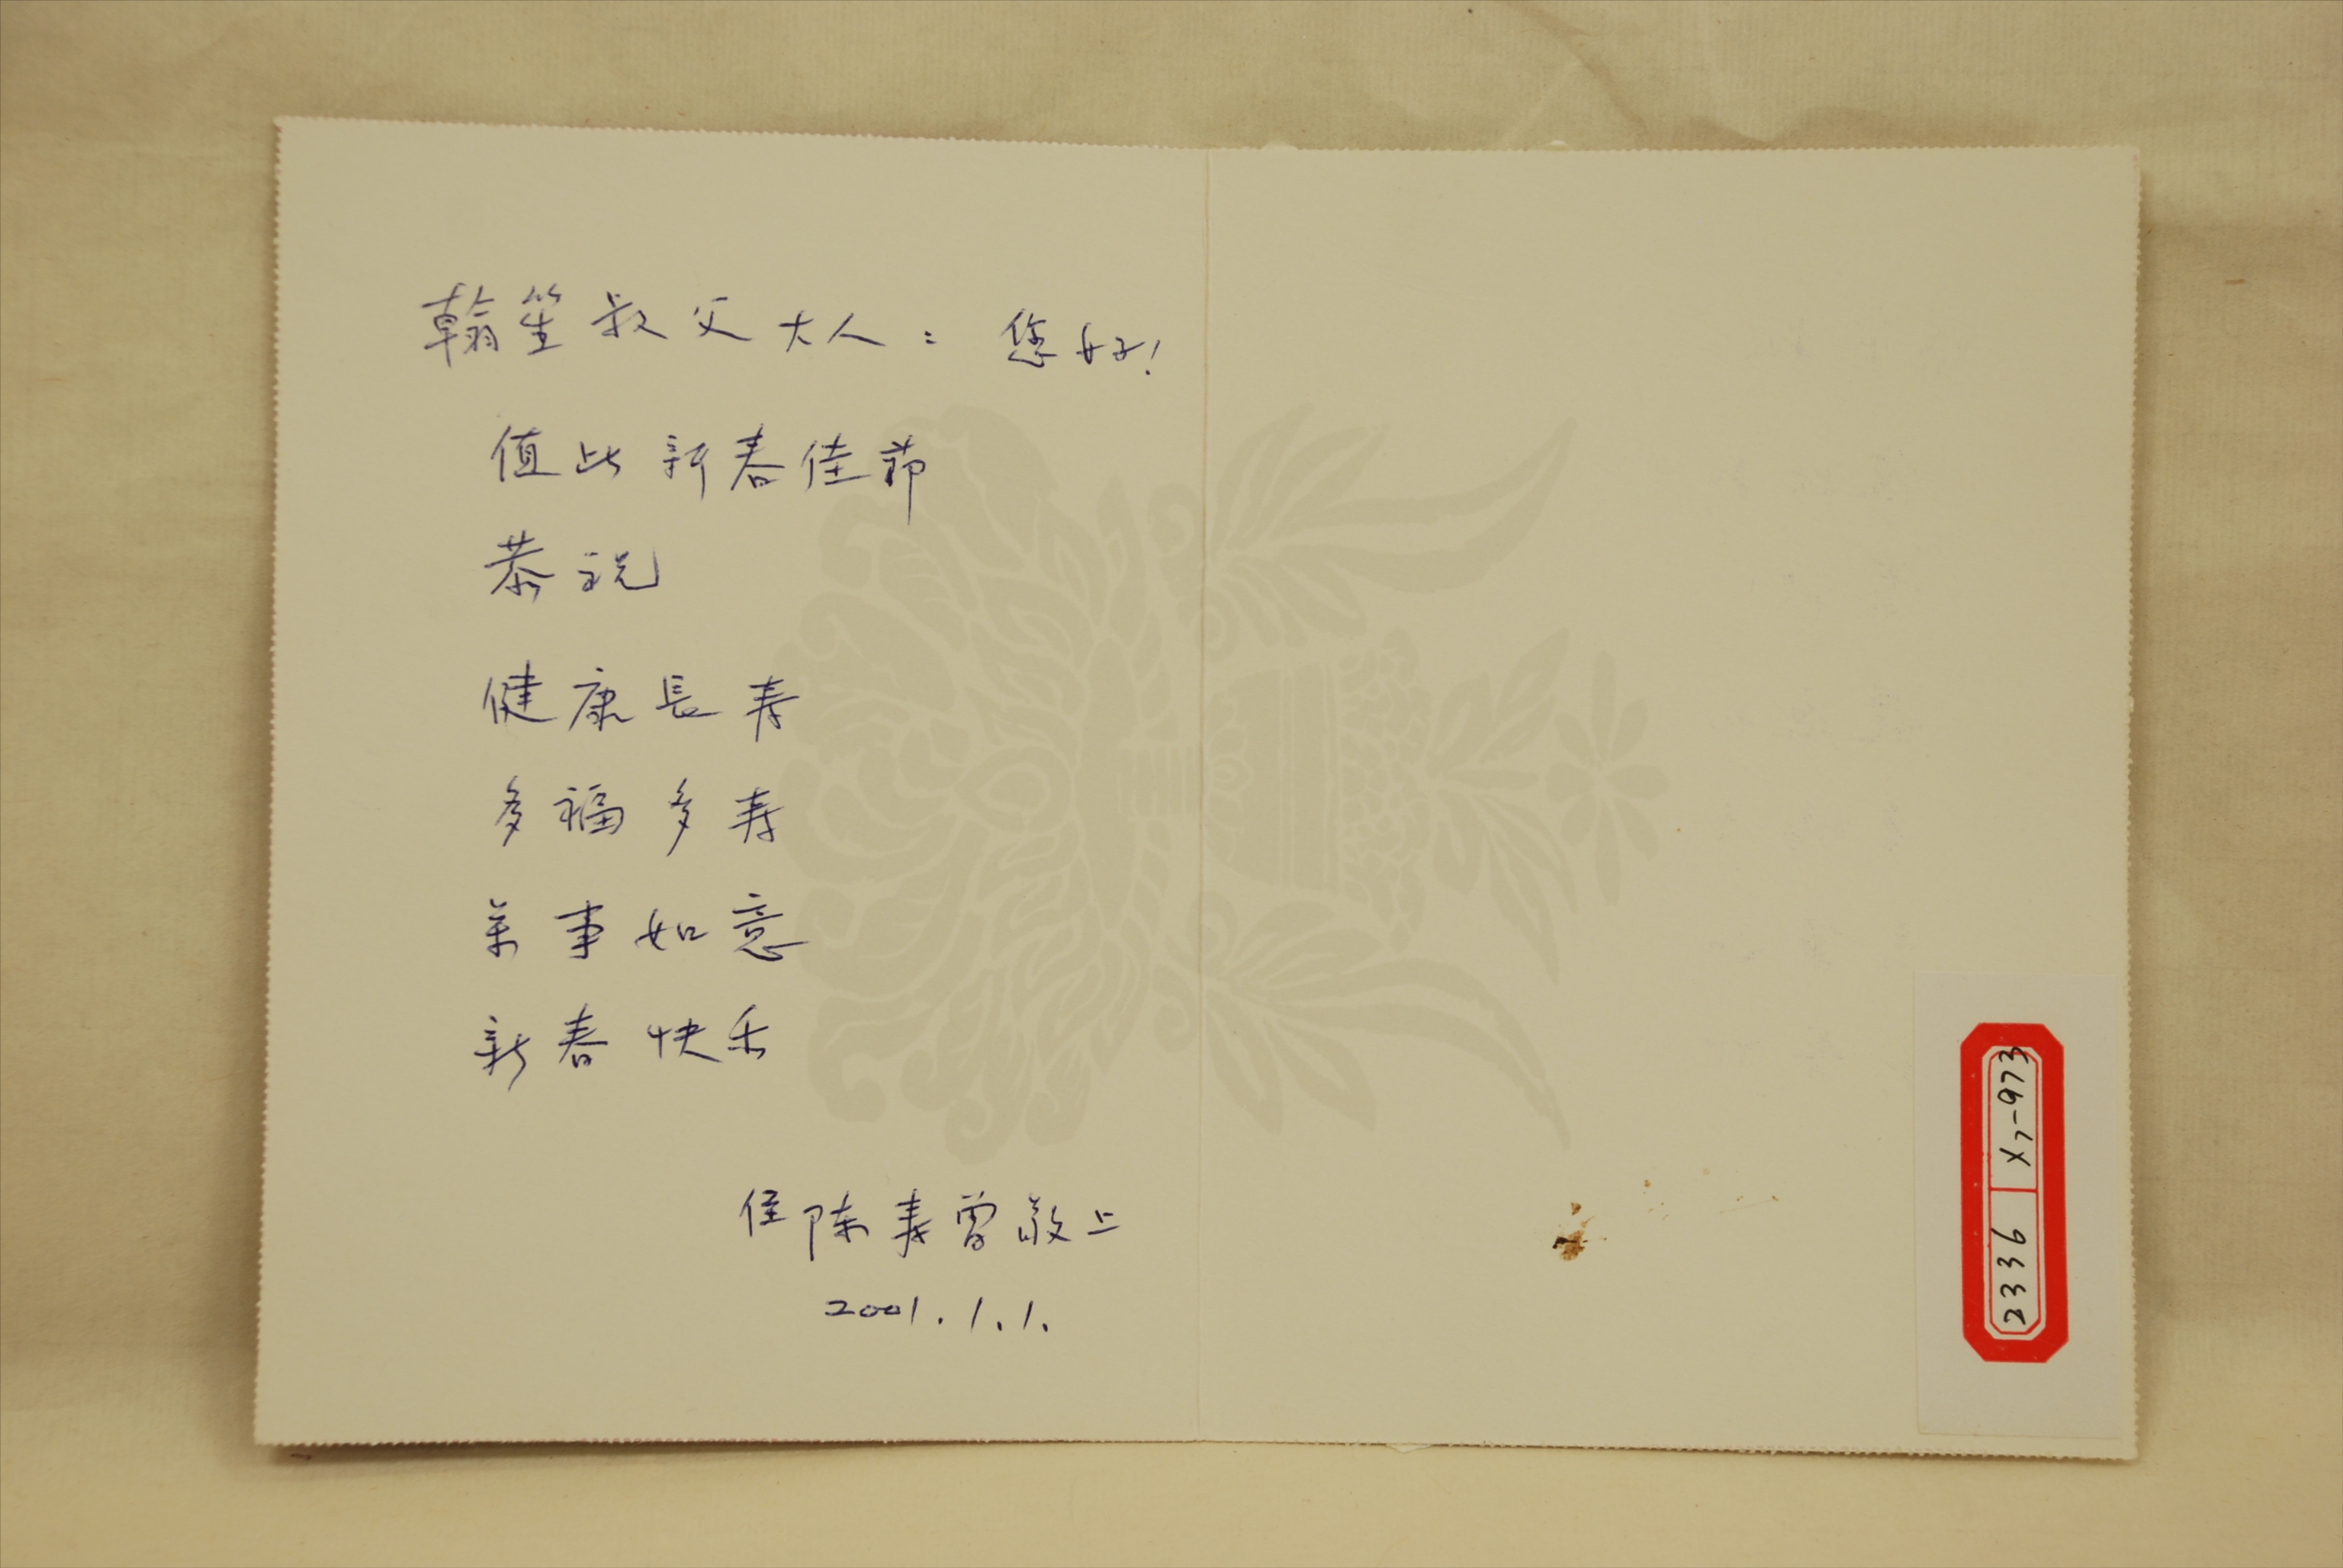 翰笙叔父大人：您好！
值此新春佳节
恭祝
健康長寿
多福多寿
万事如意
新春快乐
侄陈寿曾敬上
2001.1.1.
2336 X7-973